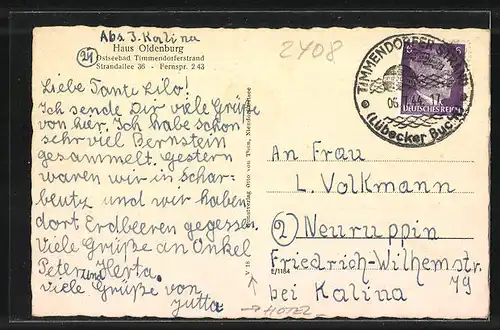 Abs. J. Kalina
24
Haus Oldenburg
Ostseebad Timmendorferstrand
Strandallee 36 - Fernspr. 243
Liebe Tante Lilo!
Ich sende Dir viele Grüße
von hier. Ich habe schon
sehr viel Bernstein
gesammelt. Gestern
waren wir in Schar-
beutz und wir haben
dort Erdbeeren gegessen.
Viele Grüße an Onkel
Peter und Herta.
viele Grüße von
Jutta
2408
TIMMENDORFER
(Lübecker
DEUTSCHES REICH
6
An Frau
L. Volkmann
2 Neuruppin
Friedrich-Wilhemstr.
79
bei Kalina
V 18
E/1184
→ HOTEL